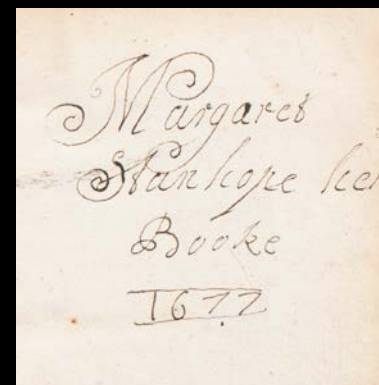 Margaret
Stanhope her
Booke
1677